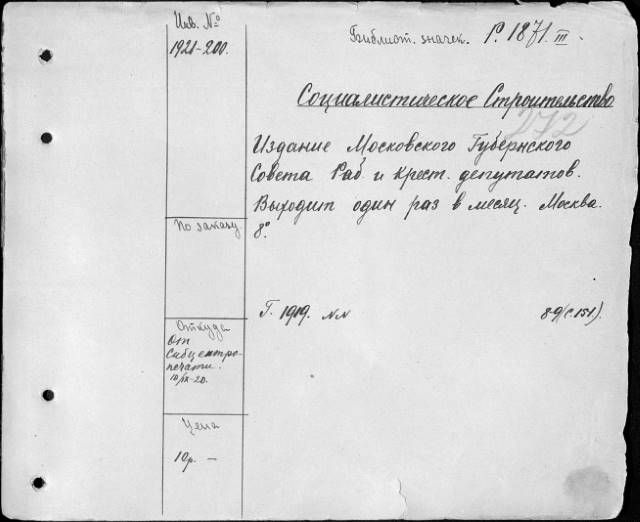 Инв. №
1921-200.
Библиот. значек. P. 1871. III.
Социалистическое Строительство
272
Издание Московского Губернского
Совета Раб. и Крест. депутатов.
Выходит один раз в месяц. Москва.
8°.
По заказу
Г. 1919. NN 89 (с. 151).
Откуда
От
Сибцентро-
печати.
18/IX-20.
Цена
10р. —